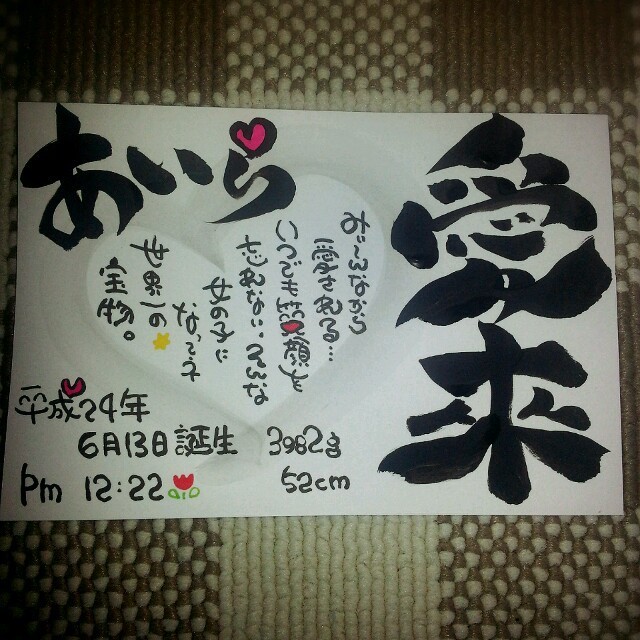 愛来
あいら
みんなから
愛される…
いつでも笑顔を
だれない
女の子に
なってネ
世界一の
宝物。
平成24年
6月13日誕生 3982g
Pm 12:22 52cm